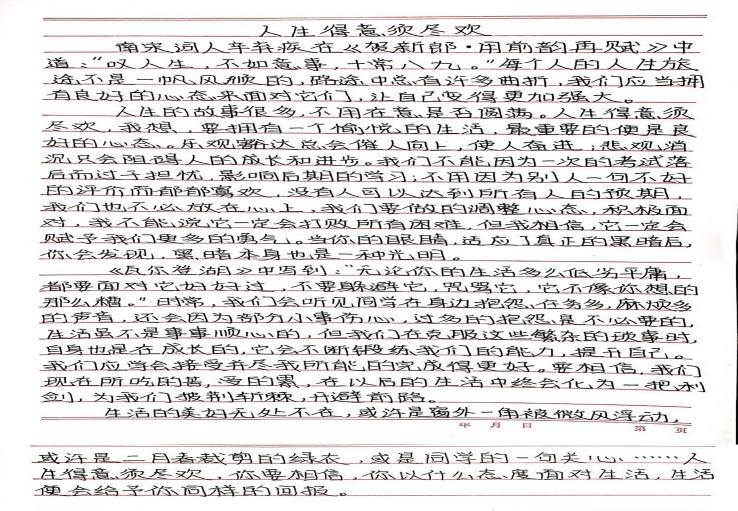 人生得意须尽欢
南宋词人辛弃疾在《贺新郎·用前韵再赋》中
道:“叹人生,不如意事,十常八九。”每个人的人生旅
途不是一帆风顺的,路途中总有许多曲折,我们应当拥
有良好的心态来面对它们,让自己变得更加强大。
人生的故事很多,不用在意是否圆满。人生得意须
尽欢,我想,要拥有一个愉悦的生活,最重要的便是良
好的心态。乐观豁达总会催人向上,使人奋进;悲观消
沉只会阻碍人的成长和进步。我们不能因为一次的考试落
后而过于担忧,影响后期的学习;不用因为别人一句不好
的评价而郁郁寡欢,没有人可以达到所有人的预期,
我们也不必放在心上,我们要做的调整心态,积极面
对,我不能说它一定会打败所有困难,但我相信,它一定会
赋予我们更多的勇气。当你的眼睛,适应了真正的黑暗后,
你会发现,黑暗本身也是一种光明。
《瓦尔登湖》中写到:“无论你的生活多么低劣平庸,
都要面对它好好过,不要躲避它,咒骂它,它不像你想的
那么糟。”时常,我们会听见同学在身边抱怨任务多,麻烦多
的声音,还会因为部分小事伤心,过多的抱怨是不必要的,
生活虽不是事事顺心的,但我们在克服这些繁杂的琐事时,
自身也是在成长的,它会不断锻练我们的能力,提升自己。
我们应学会接受并尽我所能的完成得更好。要相信,我们
现在所吃的苦,受的累,在以后的生活中终会化为一把利
剑,为我们披荆斩棘,开辟前路。
生活的美好无处不在,或许是窗外一角被微风浮动,
年 月 日 第 页
或许是二月春裁剪的绿衣,或是同学的一句关心……人
生得意须尽欢,你要相信,你以什么态度面对生活,生活
便会给予你同样的回报。